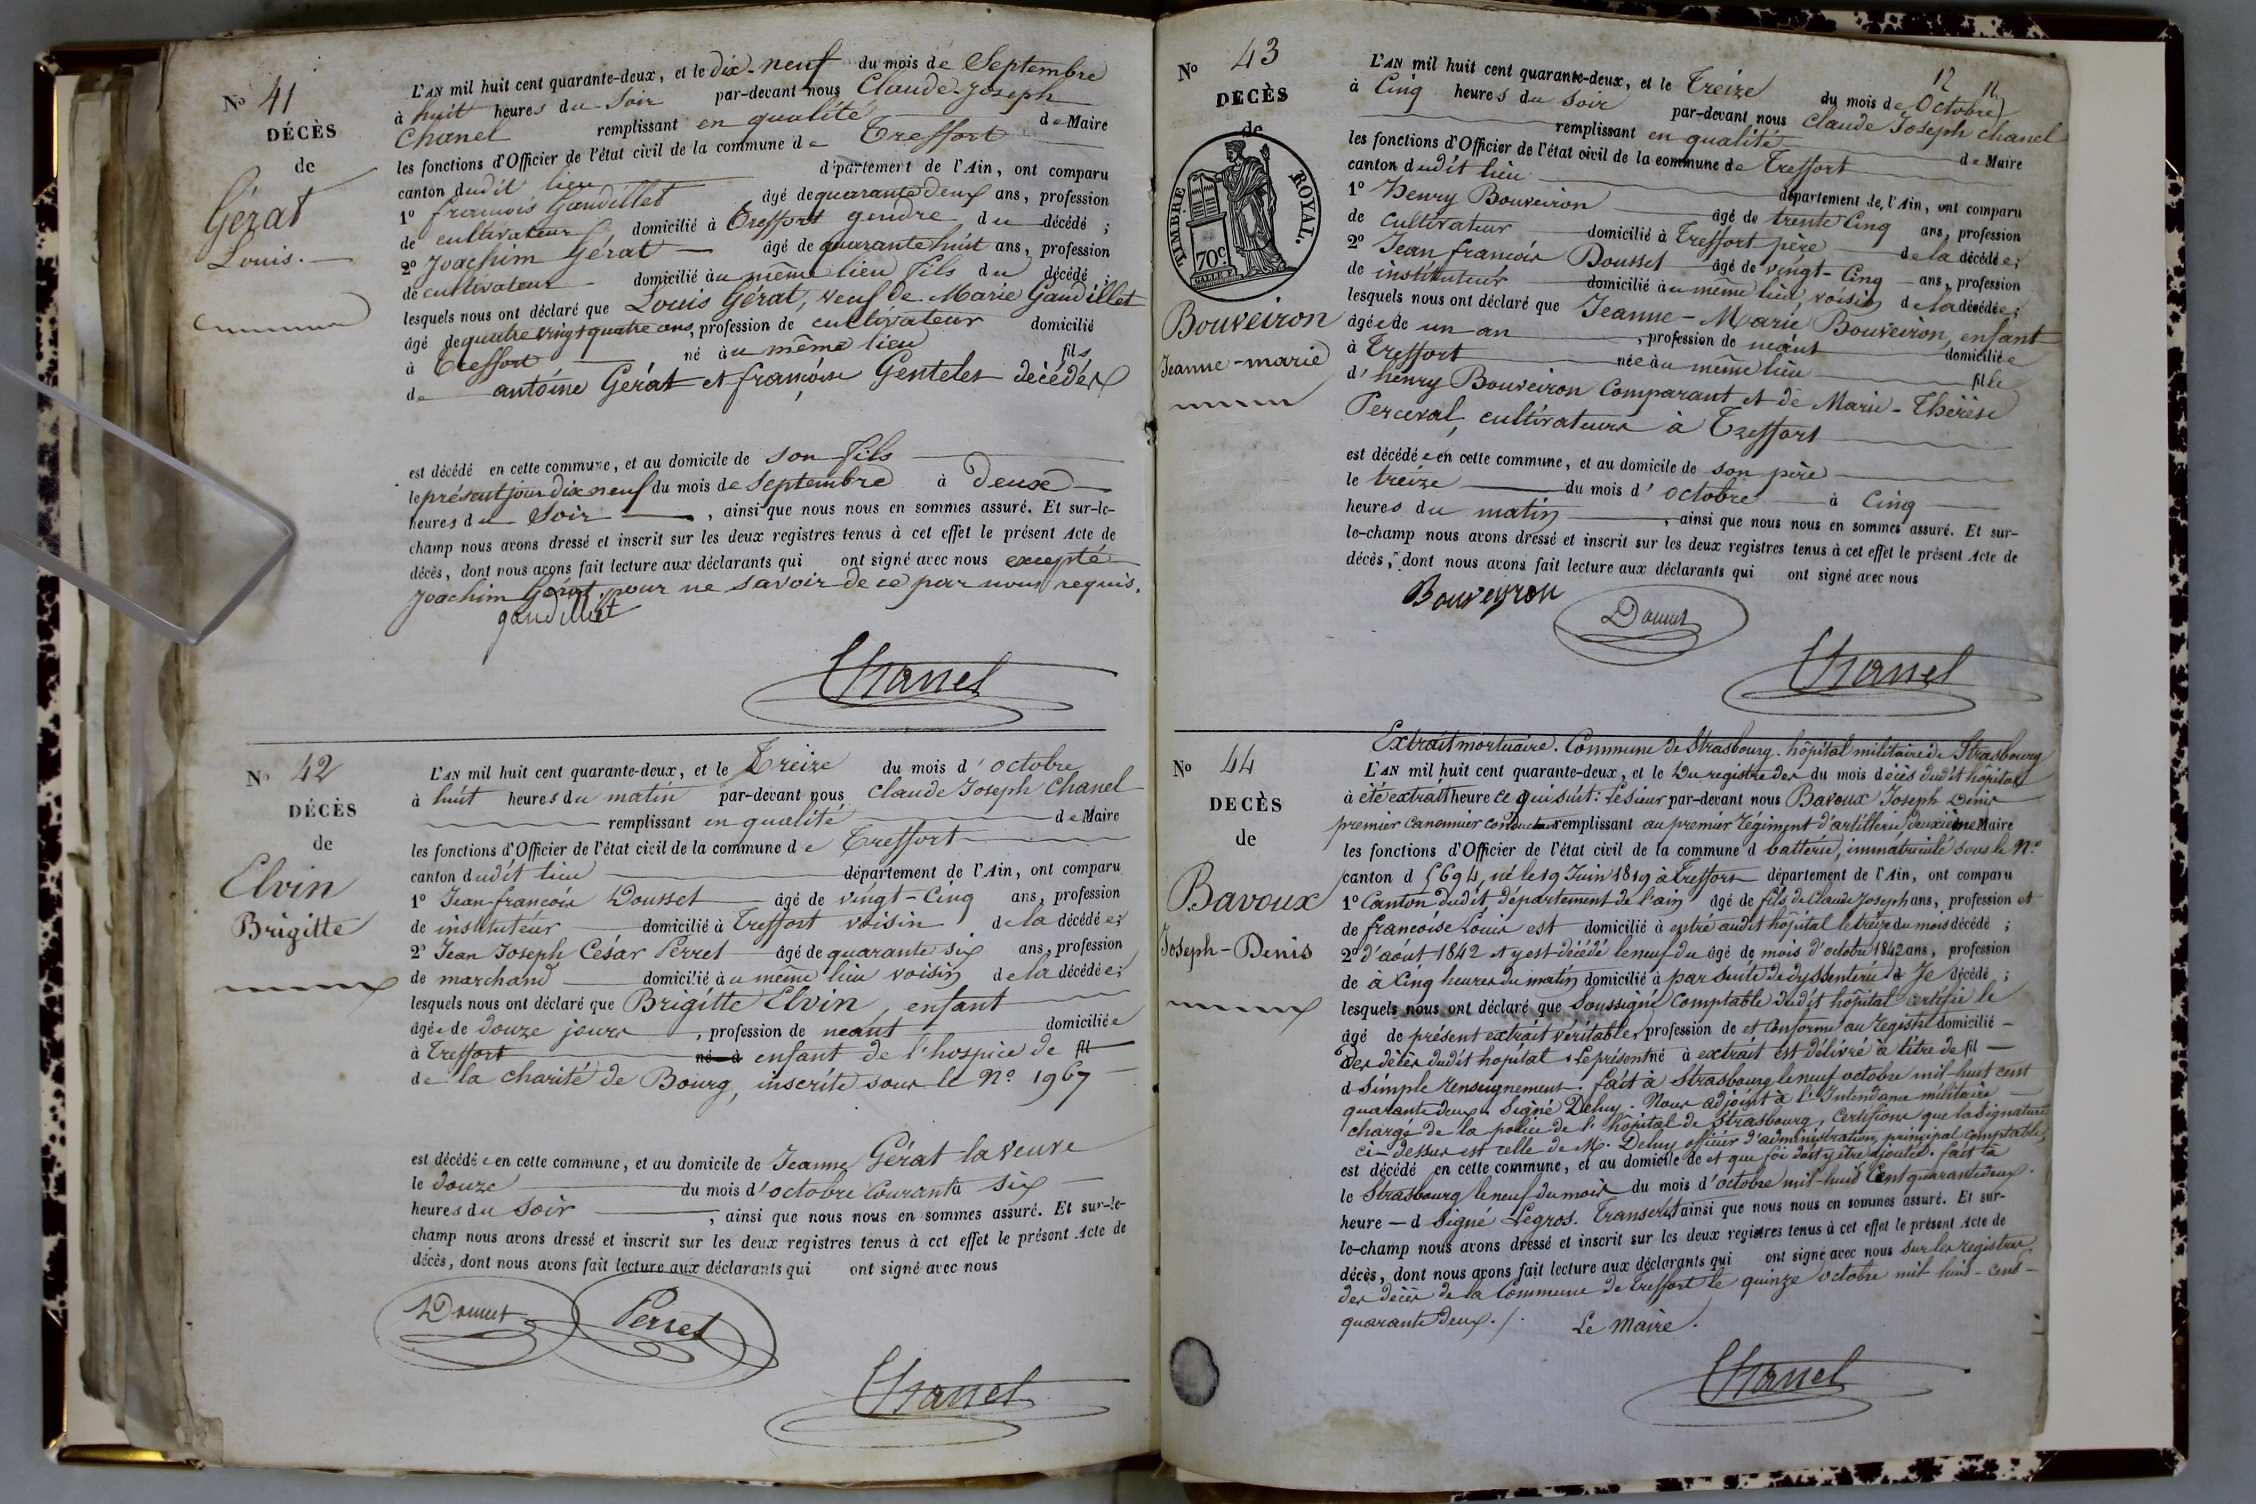 N° 41
DÉCÈS
de
Gérat
Louis.
L'AN mil huit cent quarante-deux, et le dix-neuf du mois de Septembre
à huit heures du Soir par-devant nous Claude-Joseph
Chanel remplissant en qualité de Maire
les fonctions d'Officier de l'état civil de la commune de Treffort
canton dudit lieu département de l'Ain, ont comparu
1° françois Gaudillet âgé de quarante deux ans, profession
de cultivateur domicilié à Treffort gendre du décédé ;
2° Joachim Gérat âgé de quarante huit ans, profession
de cultivateur domicilié au même lieu fils du décédé ;
lesquels nous ont déclaré que Louis Gérat, veuf de Marie Gaudillet
âgé de quatre vingt quatre ans, profession de cultivateur domicilié
à Treffort né au même lieu fils
de antoine Gérat et françoise Genteles décédés
est décédé en cette commune, et au domicile de son fils
le présent jour dix neuf du mois de Septembre à Deux
heures du Soir, ainsi que nous nous en sommes assuré. Et sur-le-
champ nous avons dressé et inscrit sur les deux registres tenus à cet effet le présent Acte de
décès, dont nous avons fait lecture aux déclarants qui ont signé avec nous excepté
Joachim Gérat, pour ne savoir de ce par nous requis.
gaudillet
Chanel
N° 42
DÉCÈS
de
Elvin
Brigitte
L'AN mil huit cent quarante-deux, et le Treize du mois d'octobre
à huit heures du matin par-devant nous Claude Joseph Chanel
remplissant en qualité de Maire
les fonctions d'Officier de l'état civil de la commune de Treffort
canton dudit lieu département de l'Ain, ont comparu
1° Jean françois Dousset âgé de vingt-Cinq ans, profession
de instituteur domicilié à Treffort voisin de la décédée;
2° Jean Joseph César Perret âgé de quarante six ans, profession
de marchand domicilié au même lieu voisin de la décédée;
lesquels nous ont déclaré que Brigitte Elvin, enfant
âgée de douze jours, profession de néant domiciliée
à Treffort né à enfant de l'hospice de fil
de la charité de Bourg, inscrite sous le N° 1967
est décédée en cette commune, et au domicile de Jeanne Gérat la veuve
le douze du mois d'octobre Courant à Six
heures du Soir, ainsi que nous nous en sommes assuré. Et sur-le-
champ nous avons dressé et inscrit sur les deux registres tenus à cet effet le présent Acte de
décès, dont nous avons fait lecture aux déclarants qui ont signé avec nous
Dousset Perret
Chanel
N° 43
DÉCÈS
de
TIMBRE ROYAL.
70c
Bouveiron
Jeanne-marie
12
L'AN mil huit cent quarante-deux, et le Treize du mois de Octobre
à Cinq heures du Soir par-devant nous Claude Joseph Chanel
remplissant en qualité de Maire
les fonctions d'Officier de l'état civil de la commune de Treffort
canton dudit lieu département de l'Ain, ont comparu
1° Henry Bouveiron âgé de trente Cinq ans, profession
de Cultivateur domicilié à Treffort père de la décédée;
2° Jean françois Dousset âgé de vingt-Cinq ans, profession
de instituteur domicilié au même lieu, voisin de la décédée;
lesquels nous ont déclaré que Jeanne-Marie Bouveiron, enfant
âgée de un an, profession de néant domiciliée
à Treffort née au même lieu fille
d'henry Bouveiron Comparant et de Marie-Thérèse
Perceval, cultivateurs à Treffort
est décédée en cette commune, et au domicile de son père
le treize du mois d'octobre à Cinq
heures du matin, ainsi que nous nous en sommes assuré. Et sur-
le-champ nous avons dressé et inscrit sur les deux registres tenus à cet effet le présent Acte de
décès, dont nous avons fait lecture aux déclarants qui ont signé avec nous
Bouveyron Dousset
Chanel
N° 44
DÉCÈS
de
Bavoux
Joseph-Denis
Extrait mortuaire. Commune de Strasbourg. hôpital militaire de Strasbourg
L'AN mil huit cent quarante-deux, et le Du registre des du mois décès dudit hôpital
à été extrait heure ce qui suit: le sieur par-devant nous Bavoux Joseph Denis
premier canonnier conducteur remplissant au premier régiment d'artillerie, deuxième Maire
les fonctions d'Officier de l'état civil de la commune d batterie, immatriculé sous le N°
canton d 5694, né le 19 Juin 1819 à Treffort département de l'Ain, ont comparu
1° Canton dudit, département de l'ain âgé de fils de Claude Joseph ans, profession et
de françoise Louis est domicilié à entré audit hôpital le treize du mois décédé ;
2° d'août 1842 et y est décédé le neuf du âgé de mois d'octobre 1842 ans, profession
de à Cinq heures du matin domicilié à par suite de dyssenterie d Je décédé ;
lesquels nous ont déclaré que Soussigné Comptable dudit hôpital certifie le
âgé de présent extrait véritable, profession de et Conforme au registre domicilié
des décès dudit hopital. le présent né à extrait est délivré à titre de fil
d simple renseignement. fait à Strasbourg le neuf octobre mil-huit cent
quarante deux. Signé Deluy. Nous adjoint à l'Intendance militaire
chargé de la police de l'hôpital de Strasbourg, Certifions que la signature
ci-dessus est celle de M. Deluy officier d'administration, principal comptable,
est décédé en cette commune, et au domicile de et que foi doit y être ajoutée. fait à
le Strasbourg le neuf du mois du mois d'octobre mil-huit Cent quarante deux.
heure d Signé Legros. Transcrit ainsi que nous nous en sommes assuré. Et sur-
le-champ nous avons dressé et inscrit sur les deux registres tenus à cet effet le présent Acte de
décès, dont nous avons fait lecture aux déclarants qui ont signé avec nous sur les registres
des décès de la Commune de Treffort le quinze octobre mil huit-cent
quarante Deux./. Le Maire.
Chanel